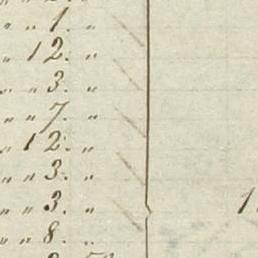 " " 1. "
" 12. "
" " 3. "
" " 7. "
" 12. "
" " 3. "
" " 3. "
" " 8. "